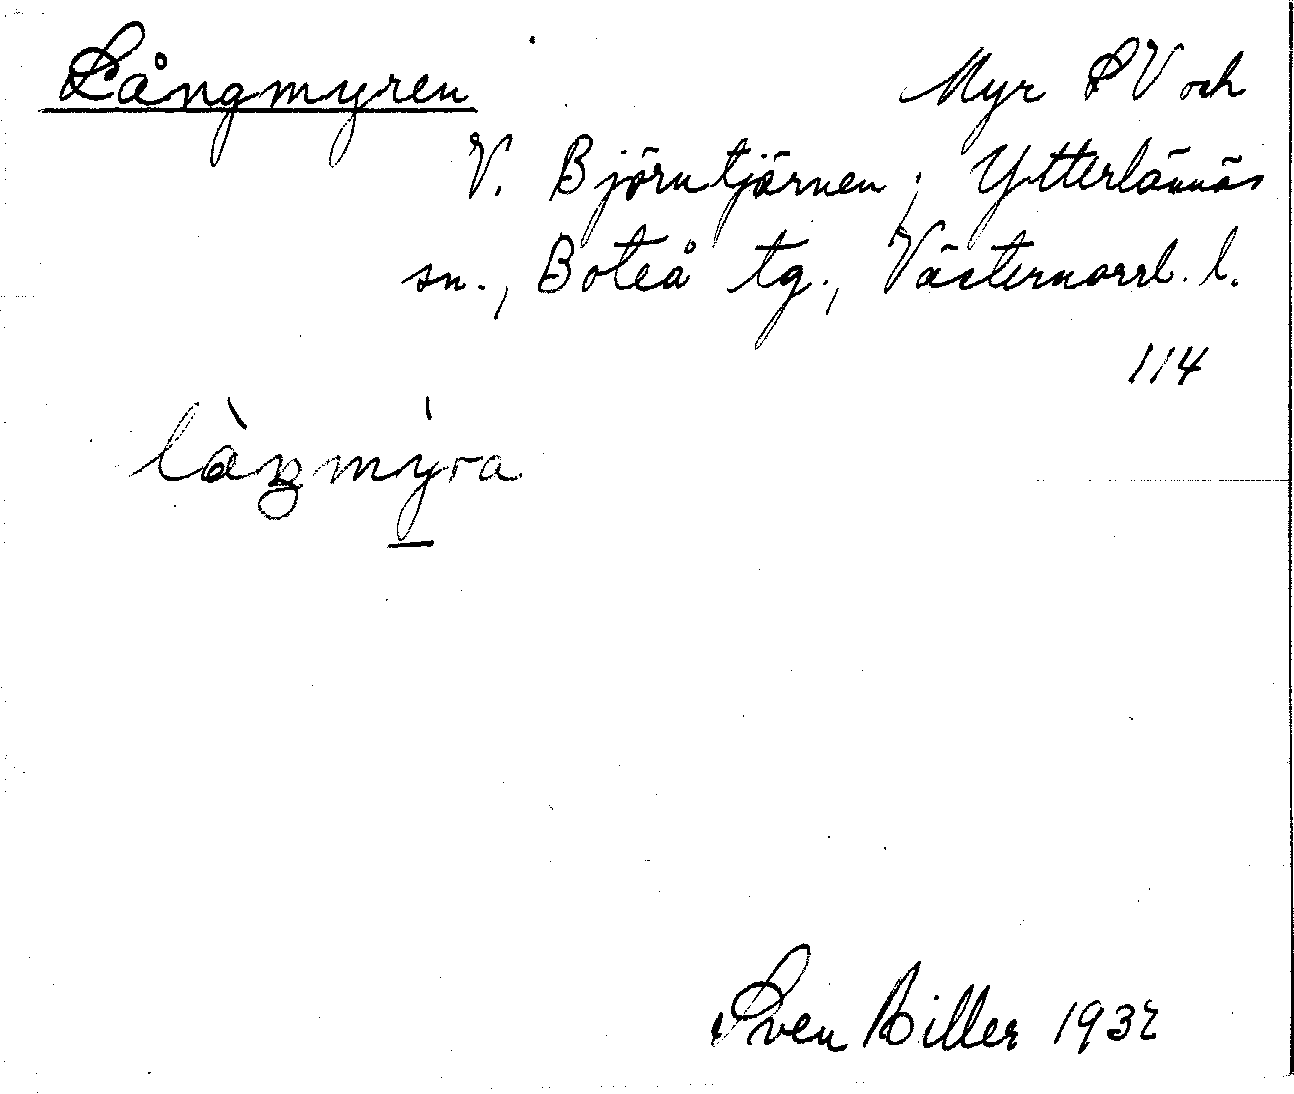 Långmyren
Myr SV och
V. Björntjärnen; Ytterlännäs
sn., Boteå tg., Västernorrl. l.
114
Sven Biller 1932